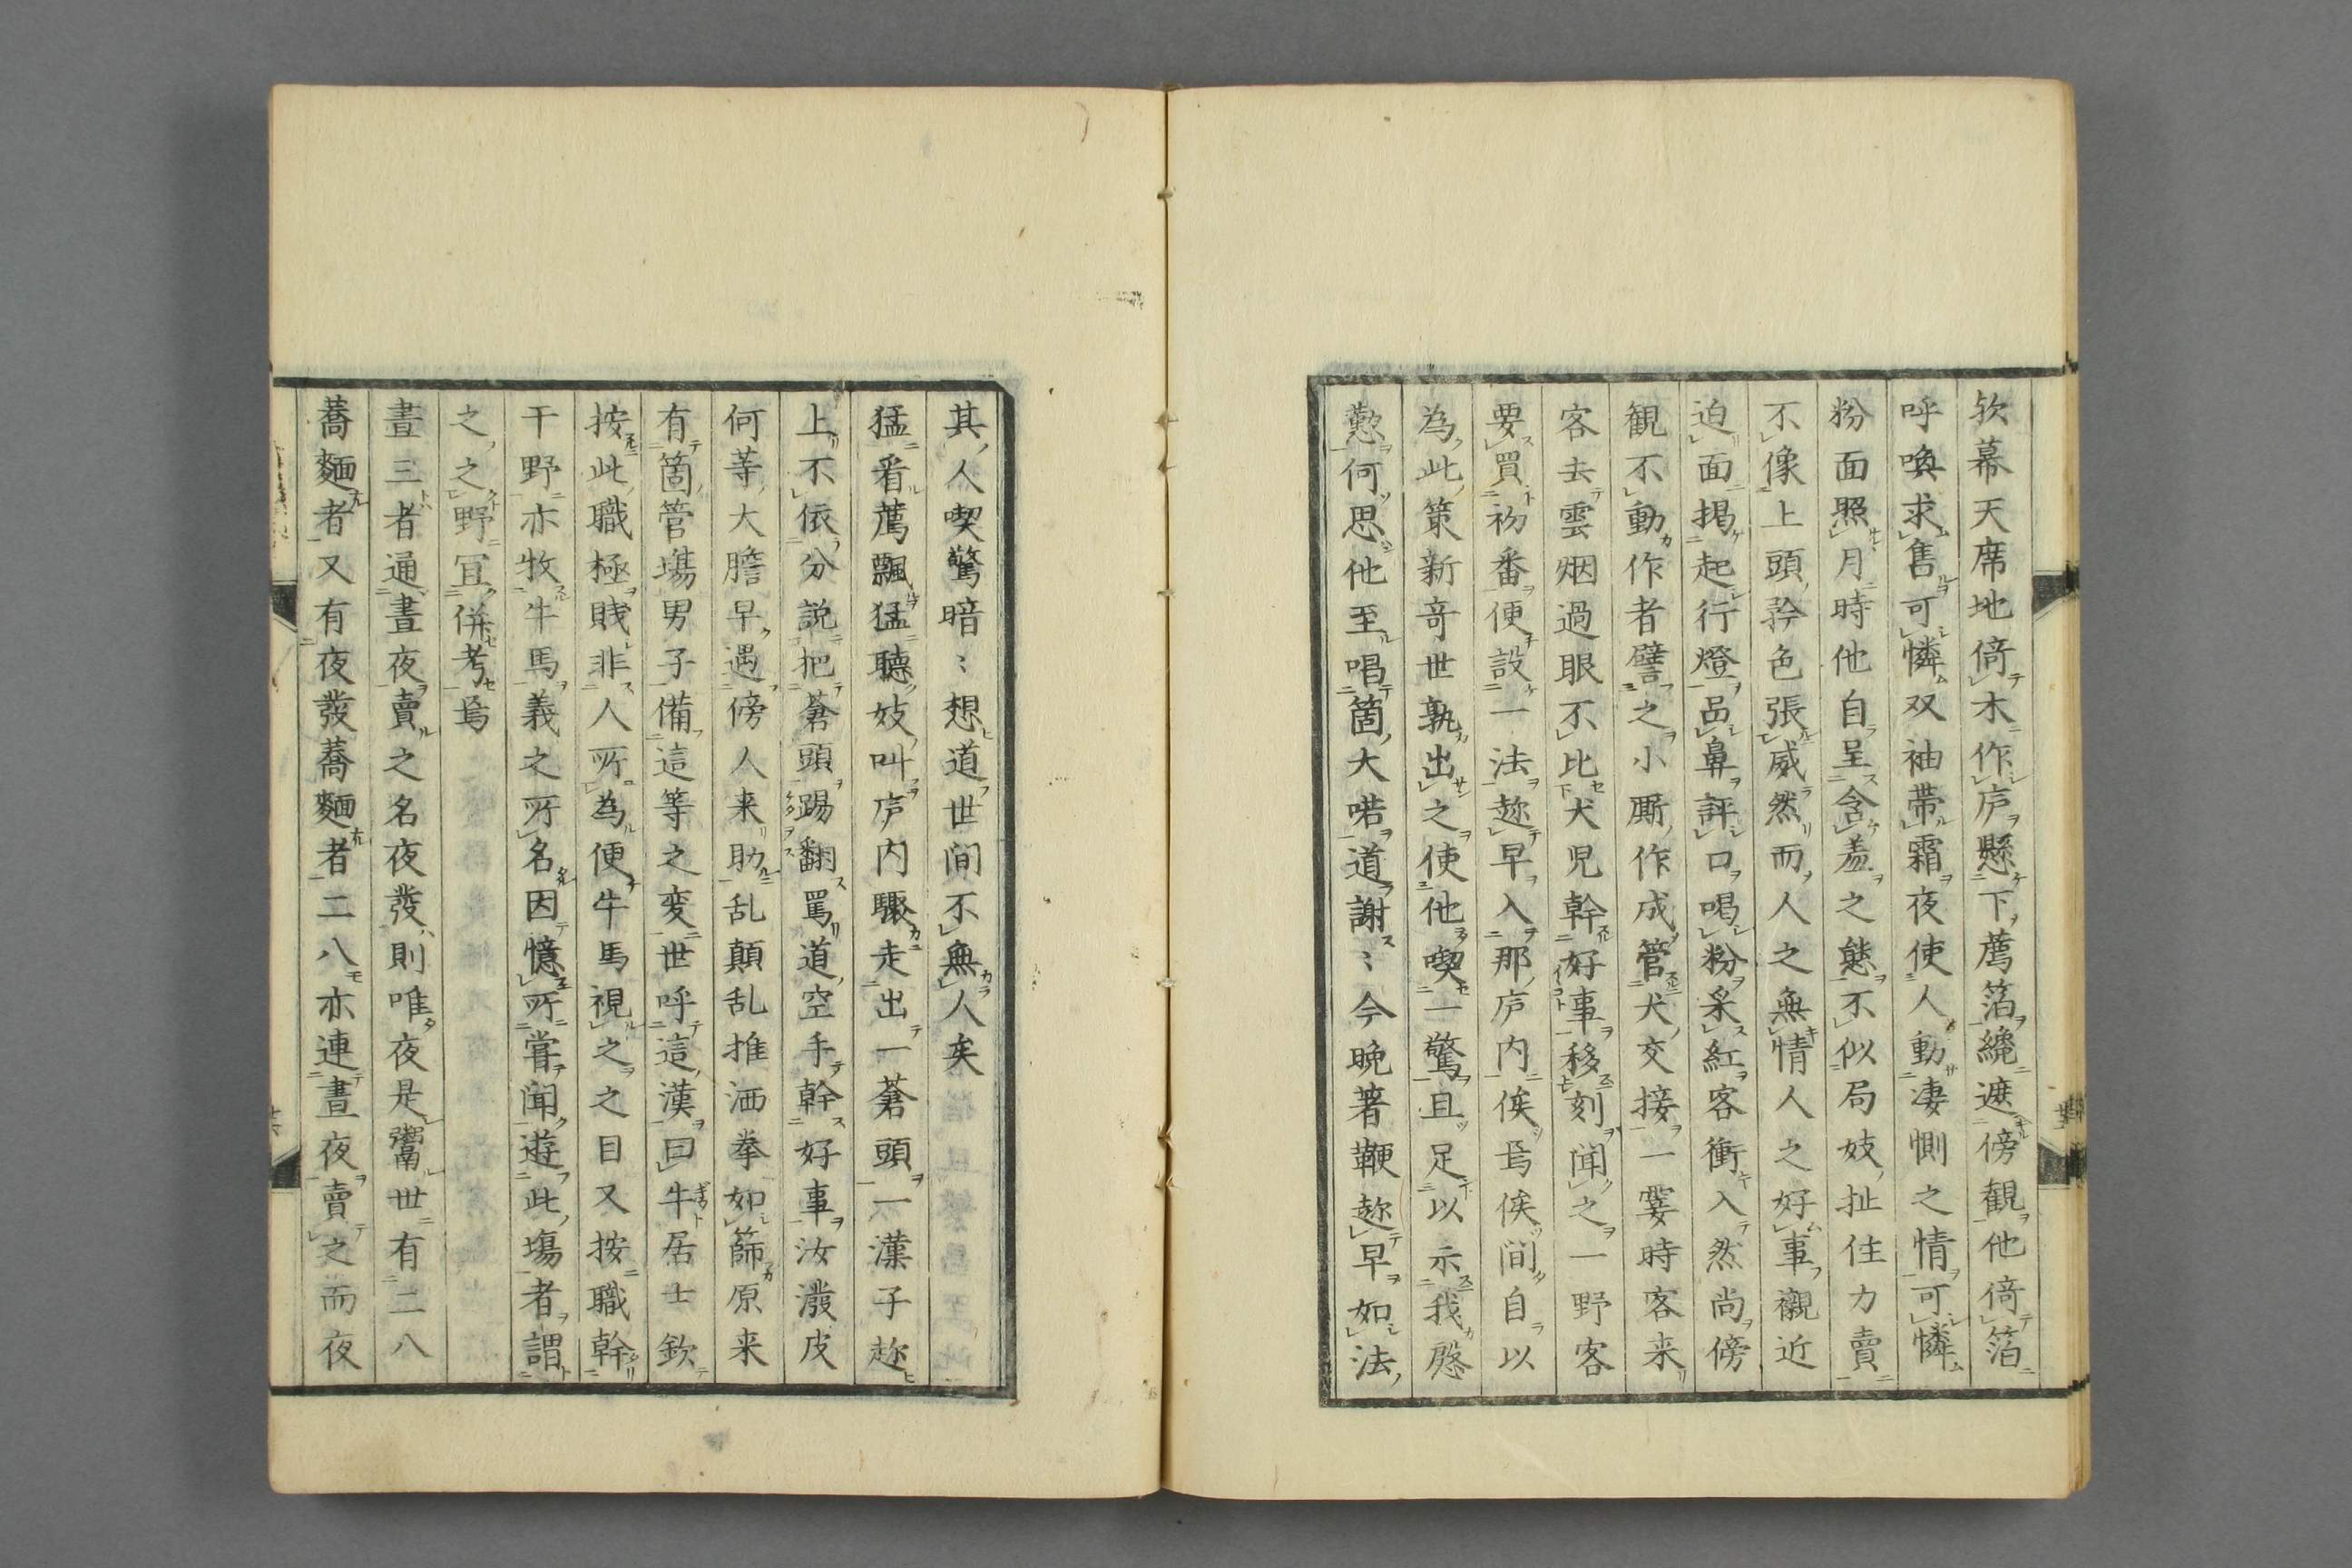 欤幕天席地倚木作庐懸下薦箔纔遮傍観他倚箔
呼喚求售可憐双袖帯霜夜使人動凄惻之情可憐
粉面照月時他自呈含羞之態不似局妓扯住力賣
不像上頭矜色張威然而人之無情人之好事襯近
迫面掲起行燈品鼻評口喝粉采紅客衝入然尚傍
観不動作者譬之小厮作成管犬交接一霎時客来
客去雲烟過眼不比犬児幹好事移刻聞之一野客
要買初番便設一法趂早入那庐内俟焉俟間自以
為此策新竒世孰出之使他喫一驚且足以示我慇
懃何思他至唱箇大喏道謝〻今晩著鞭趂早如法
其人喫驚暗〻想道世间不無人矣
猛看薦飄猛聴妓叫庐内驟走出一蒼頭一漢子趂
上不依分説把蒼頭踢翻罵道空手幹好事汝潑皮
何等大膽早遇傍人来助乱顛乱推洒拳如篩原来
有箇管塲男子備這等之変世呼這漢曰牛居士欽
按此職極賎非人所為便牛馬視之之目又按職幹
干野亦牧牛馬義之所名因憶所嘗聞遊此塲者謂
之之野冝併考焉
晝三者通晝夜賣之名夜發則唯夜是鬻世有二八
蕎麺者又有夜發蕎麺者二八亦連晝夜賣之而夜